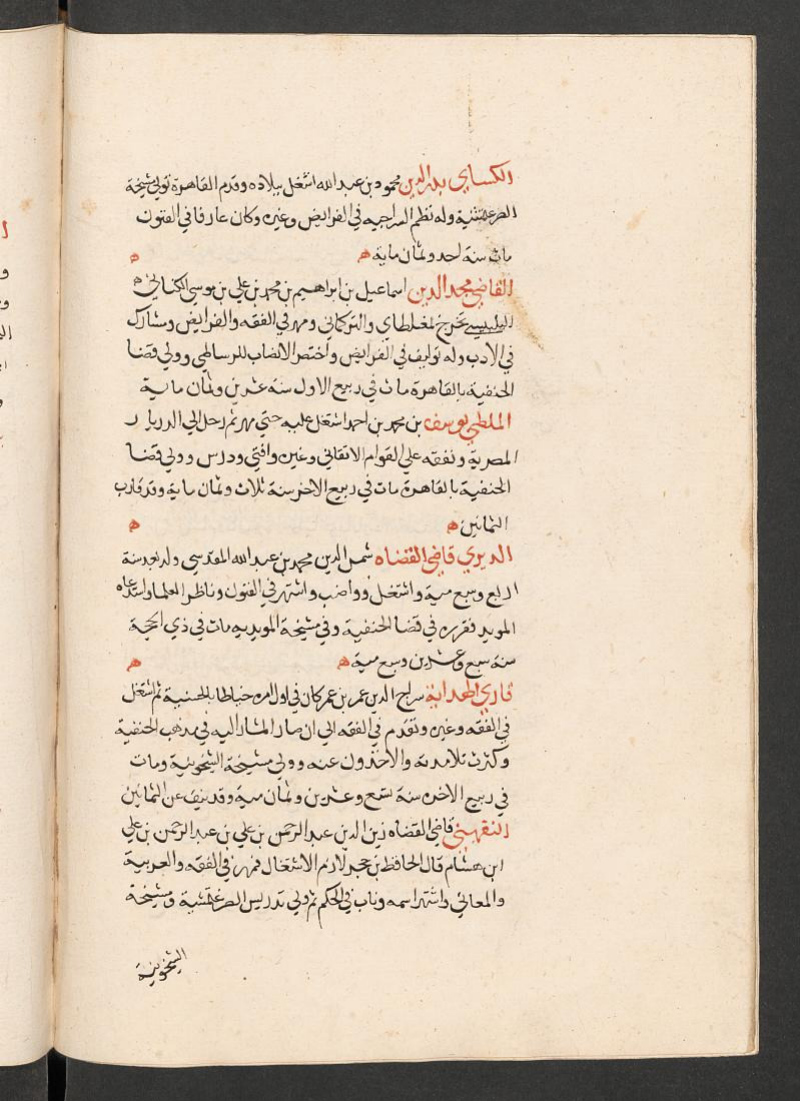 الكستاي بدر الدين محمود بن عبد الله اشتغل ببلاده وقدم القاهرة تولى مشيخة
الصرغتمشية وله نظم السراجيه في الفرايض وغيره وكان عارفا في الفنون
مات سنة احد وثمان ماية ه ه
القاضي مجد الدين اسماعيل بن ابراهيم بن محمد بن علي بن موسى الكناني ه
البلبيسي تخرج لمغلطاي والتركماني ومهر في الفقه والفرايض وشارك
في الادب وله تواليف في الفرايض واختصر الانساب للرساطي وولي قضا
الحنفية بالقاهرة مات في ربيع الاول سنة عشرين وثمان ماية
الملطي يوسف بن محمد بن احمد اشتغل حتي مهر ثم رحل الي الديار
المصرية وتفقه علي القوام الاتقاني وغيره وافتي ودرس وولي قضا
الحنفية بالقاهرة مات في ربيع الاخر سنة ثلاث وثمان ماية وقد قارب
الثمانين ه ه
الديري قاضي القضاه شمس الدين محمد بن عبد الله المقدسي ولد بعد سنة
اربع وسبع مية واشتغل وواضب واشتهر في الفنون وناظر العلما واستدعاه
المويد فقرره في قضا الحنفية وفي مشيخة المويديه مات في ذي الحجة
سنة سبع وعشرين وسبع مية ه ه
قاري الهداية سراج الدين عمر بن عمر كان في اول امره خياطا بالحسنية ثم اشتغل
في الفقه وغيره وتقدم في الفقه الي ان صار المشار اليه في مذهب الحنفية
وكثرت تلامذته والاخذون عنه وولي مشيخة الشيخونية ومات
في ربيع الاخر سنة تسع وعشرين وثمان مية وقد نيف عن الثمانين
التفهني قاضي القضاه زين الدين عبد الرحمن بن علي بن عبد الرحمن بن علي
ابن هشام قال الحافظ بن حجر لازم الاشتغال فمهر في الفقه والعربية
والمعاني واشتهر اسمه وناب في الحكم ثم ولي تدريس الصرغتمشية ومشيخة
الشيخونية